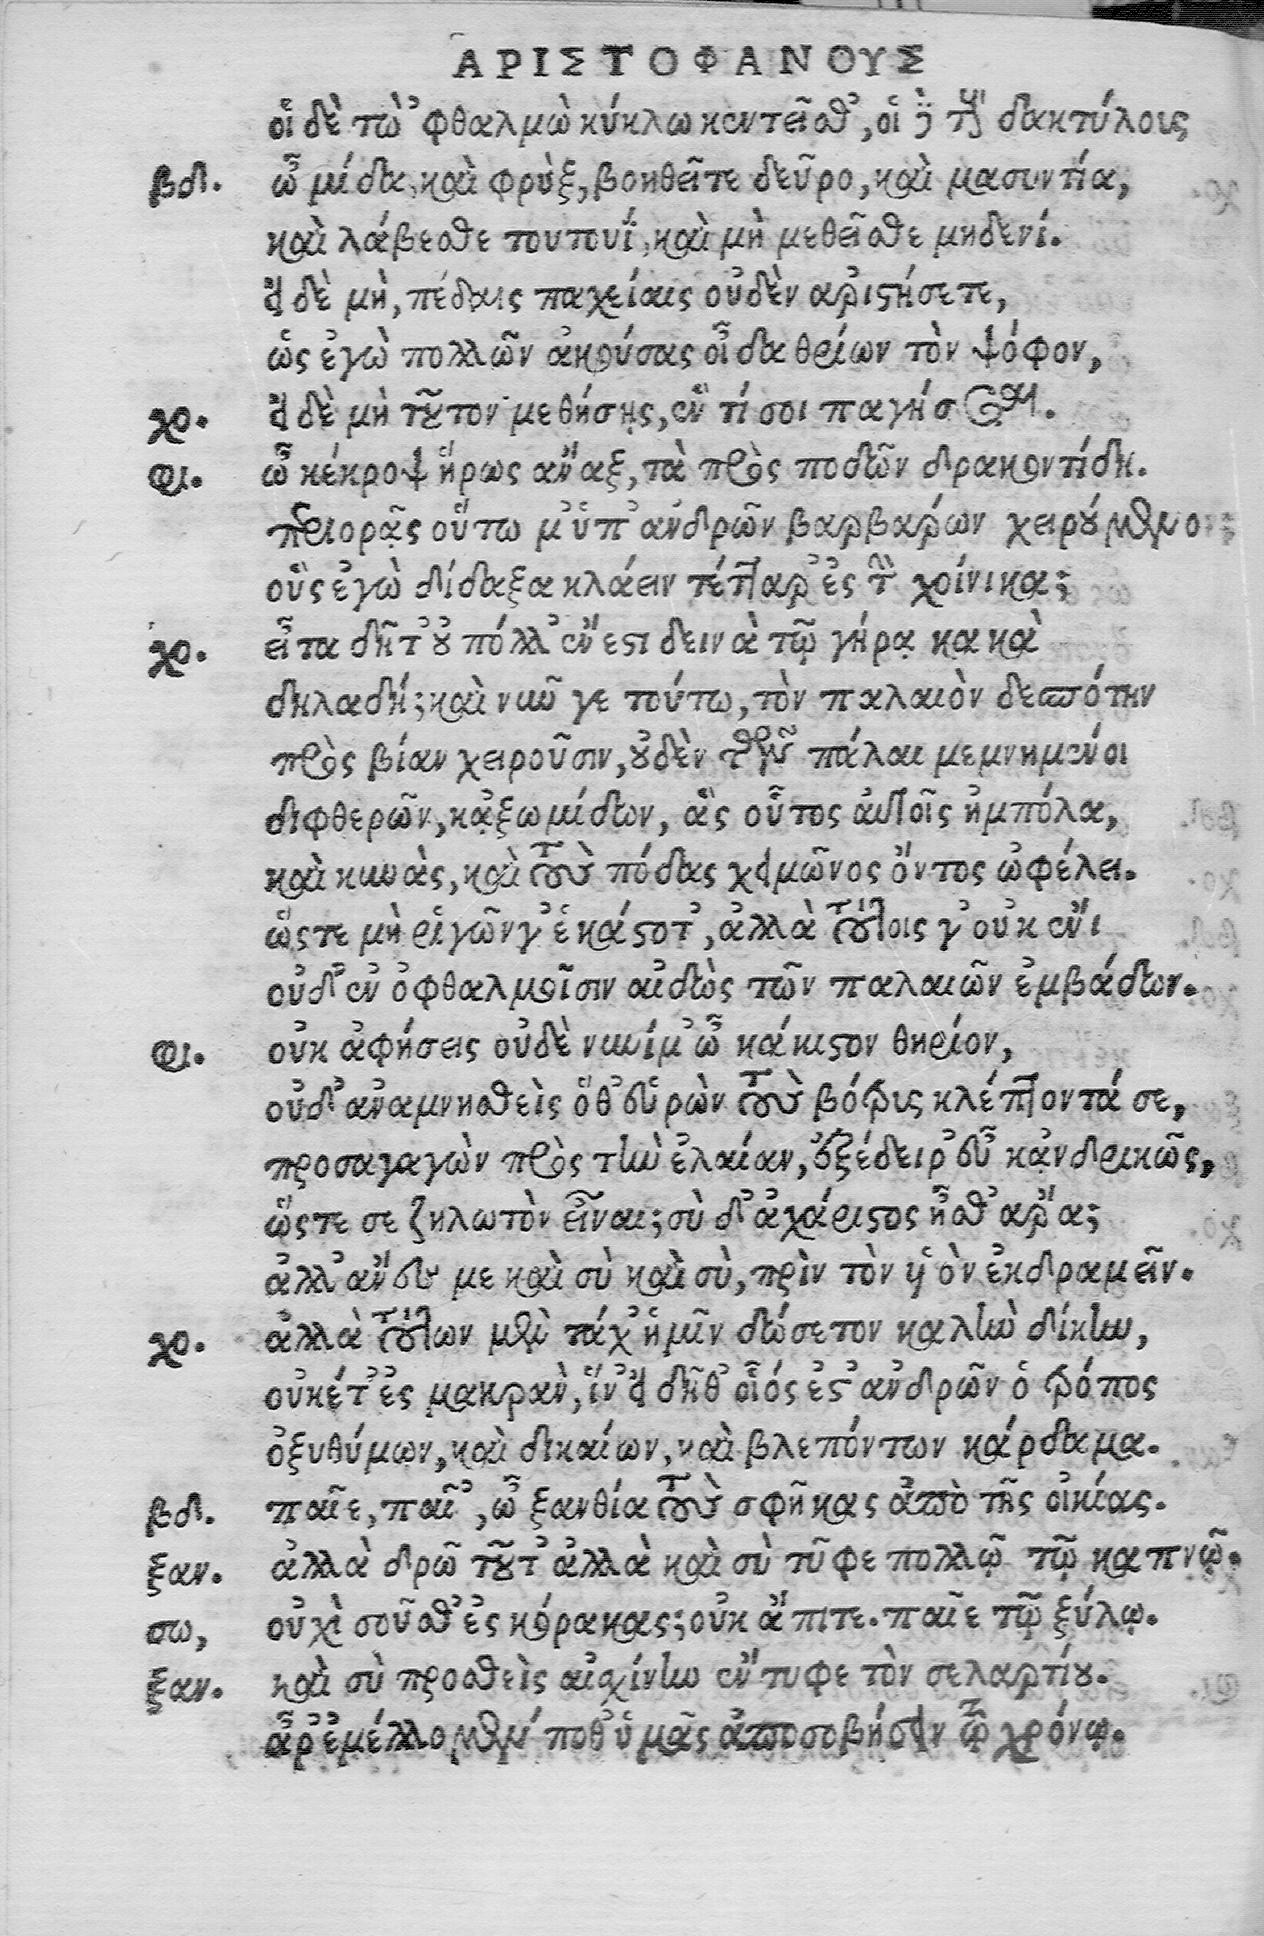 ΑΡΙΣΤΟΦΑΝΟΥΣ
οἱ δὲ τὼ ὀφθαλμὼ κύκλω κεντεῖσθ᾽, οἱ δὲ τοὺς δακτύλους
βδ. ὦ μίδα, καὶ φρὺξ, βοηθεῖτε δεῦρο, καὶ μασυντία,
καὶ λάβεσθε τουτουΐ, καὶ μὴ μεθεῖσθε μηδενί.
εἰ δὲ μὴ, πέδαις παχείαις οὐδὲν ἀριστήσετε,
ὡς ἐγὼ πολλῶν ἀκούσας οἶδα θρίων τὸν ψόφον,
χο. εἰ δὲ μὴ τοῦτον μεθήσῃς, ἔν τί σοι παγήσεται.
φι. ὦ κέκροψ ἥρως ἄναξ, τὰ πρὸς ποδῶν δρακοντίδη.
περιορᾷς οὕτω μ᾽ ὑπ᾽ ἀνδρῶν βαρβάρων χειρούμενον;
οὓς ἐγὼ δίδαξα κλάειν τέτταρ᾽ ἐς τὴν χοίνικα;
χο. εἶτα δῆτ᾽ οὐ πόλλ᾽ ἔνεστι δεινὰ τῷ γήρᾳ κακὰ
δηλαδή; καὶ νῦν γε τούτω, τὸν παλαιὸν δεσπότην
πρὸς βίαν χειροῦσιν, οὐδὲν τῶν πάλαι μεμνημένοι
διφθερῶν, κᾀξωμίδων, ἃς οὗτος αὐτοῖς ἠμπόλα,
καὶ κυνὰς, καὶ τοὺς πόδας χειμῶνος ὄντος ὠφέλει.
ὥστε μὴ ῥιγῶν γ᾽ ἑκάστοτ᾽, ἀλλὰ τούτοις γ᾽ οὐκ ἔνι
οὐδ᾽ ἐν ὀφθαλμοῖσιν αἰδὼς τῶν παλαιῶν ἐμβάδων.
φι. οὐκ ἀφήσεις οὐδὲ νυνί μ᾽ ὦ κάκιστον θηρίον,
οὐδ᾽ ἀναμνησθεὶς ὅθ᾽ εὑρὼν τοὺς βότρυς κλέπτοντά σε,
προσαγαγὼν πρὸς τὴν ἐλαίαν, ἐξέδειρ᾽ εὖ κᾀνδρικῶς,
ὥστε σε ζηλωτὸν εἶναι; σὺ δ᾽ ἀχάριστος ἦσθ᾽ ἄρα;
ἀλλ᾽ ἄνες με καὶ σὺ καὶ σὺ, πρὶν τὸν υἱὸν ἐκδραμεῖν.
χο. ἀλλὰ τούτων μὲν τάχ᾽ ἡμῖν δώσετον καλὴν δίκην,
οὐκέτ᾽ ἐς μακρὰν, ἵν᾽ εἰδῆθ᾽ οἷός ἐστ᾽ ἀνδρῶν ὁ τρόπος
ὀξυθύμων, καὶ δικαίων, καὶ βλεπόντων κάρδαμα.
βδ. παῖε, παῖ᾽, ὦ ξανθία τοὺς σφῆκας ἀπὸ τῆς οἰκίας.
ξαν. ἀλλὰ δρῶ τοῦτ᾽ ἀλλὰ καὶ σὺ τῦφε πολλῷ τῷ καπνῷ.
σω, οὐχὶ σοῦσθ᾽ ἐς κόρακας; οὐκ ἄπιτε. παῖε τῷ ξύλῳ.
ξαν. καὶ σὺ προσθεὶς αἰσχίνην ἔντυφε τὸν σελαρτίου.
ἆρ᾽ ἐμέλλομέν ποθ᾽ ὑμᾶς ἀποσοβήσειν τῷ χρόνῳ.